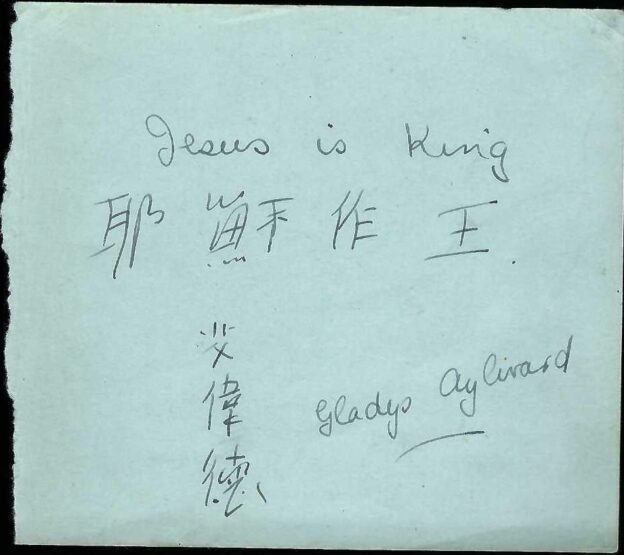 Jesus is King
耶穌作王.
艾偉德
Gladys Aylward